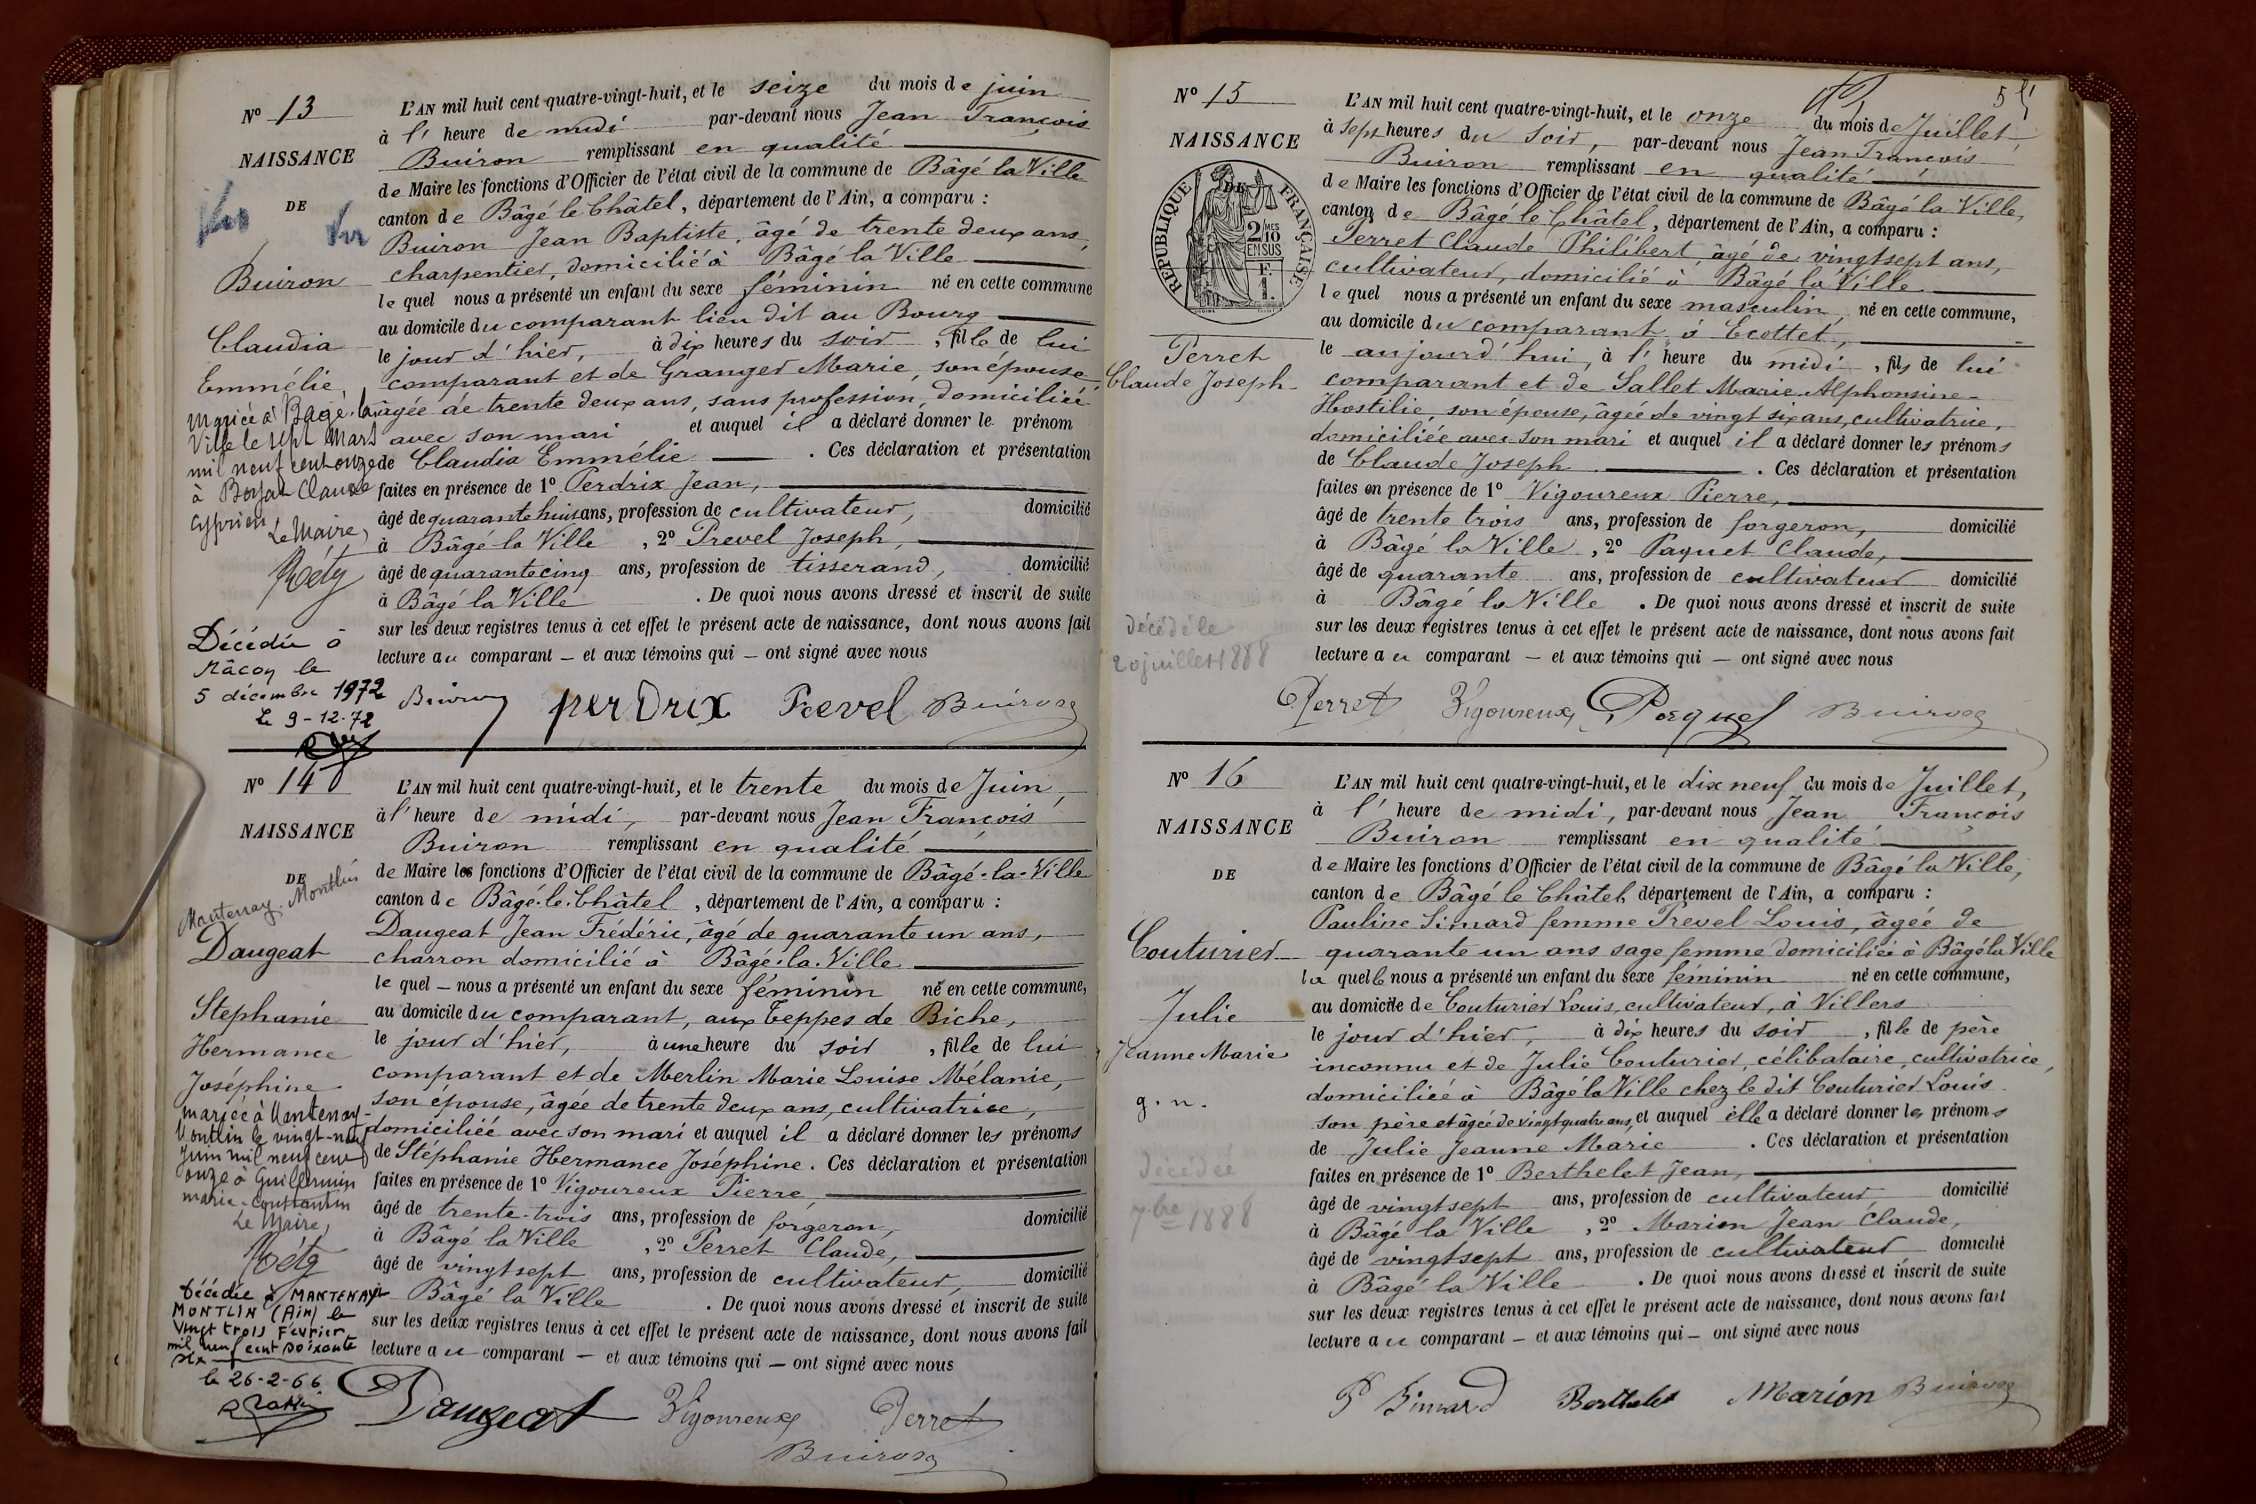 N° 13
NAISSANCE
DE
Buiron
Claudia
Emmélie
mariée à Bagé-la-
Ville le sept Mars
mil neuf cent onze
à Borjat Claude
Cyprien
Le Maire,
Réty
Décédée à
Mâcon le
5 décembre 1972
Le 9-12-72
L'AN mil huit cent quatre-vingt-huit, et le seize du mois de juin
à l' heure de midi par-devant nous Jean François
Buiron remplissant en qualité
de Maire les fonctions d'Officier de l'état civil de la commune de Bâgé la Ville
canton de Bâgé le Châtel, département de l'Ain, a comparu :
Buiron Jean Baptiste, âgé de trente deux ans,
charpentier, domicilié à Bâgé la Ville
le quel nous a présenté un enfant du sexe féminin né en cette commune
au domicile du comparant lieu dit au Bourg
le jour d'hier, à dix heures du soir, fille de lui
comparant et de Granger Marie, son épouse,
âgée de trente deux ans, sans profession, domiciliée
avec son mari et auquel il a déclaré donner le prénom
de Claudia Emmélie. Ces déclaration et présentation
faites en présence de 1° Perdrix Jean,
âgé de quarante huit ans, profession de cultivateur, domicilié
à Bâgé la Ville, 2° Prevel Joseph,
âgé de quarante cinq ans, profession de tisserand, domicilié
à Bâgé la Ville. De quoi nous avons dressé et inscrit de suite
sur les deux registres tenus à cet effet le présent acte de naissance, dont nous avons fait
lecture au comparant — et aux témoins qui — ont signé avec nous
Buiron perdrix Prevel Buiron
N° 14
NAISSANCE
DE
Mantenay-Montlin
Daugeat
Stephanie
Hermance
Joséphine
mariée à Mantenay-
Montlin le vingt-neuf
Juin mil neuf cent
onze à Guillermin
marie-Constantin
Le Maire,
Réty
Décédée à MANTENAY
MONTLIN (Ain) le
vingt trois Février
mil neuf cent soixante
six
le 26-2-66
L'AN mil huit cent quatre-vingt-huit, et le trente du mois de Juin,
à l' heure de midi, par-devant nous Jean François
Buiron remplissant en qualité
de Maire les fonctions d'Officier de l'état civil de la commune de Bâgé-la-Ville
canton de Bâgé-le-Châtel, département de l'Ain, a comparu :
Daugeat Jean Frédéric, âgé de quarante un ans,
charron domicilié à Bâgé-la-Ville
le quel — nous a présenté un enfant du sexe féminin né en cette commune,
au domicile du comparant, aux Teppes de Biche,
le jour d'hier, à une heure du soir, fille de lui
comparant et de Merlin Marie Louise Mélanie,
son épouse, âgée de trente deux ans, cultivatrice,
domiciliée avec son mari et auquel il a déclaré donner les prénoms
de Stéphanie Hermance Joséphine. Ces déclaration et présentation
faites en présence de 1° Vigoureux Pierre
âgé de trente-trois ans, profession de forgeron, domicilié
à Bâgé la Ville, 2° Perret Claude,
âgé de vingt sept ans, profession de cultivateur, domicilié
à Bâgé la Ville. De quoi nous avons dressé et inscrit de suite
sur les deux registres tenus à cet effet le présent acte de naissance, dont nous avons fait
lecture au comparant — et aux témoins qui — ont signé avec nous
Daugeat Vigoureux Perret
Buiron
N° 15
NAISSANCE
DE
RÉPUBLIQUE FRANÇAISE
2/10 MES
EN SUS
F.
1.
Perret
Claude Joseph
décédé le
20 juillet 1888
L'AN mil huit cent quatre-vingt-huit, et le onze du mois de Juillet,
à sept heures du soir, par-devant nous Jean François
Buiron remplissant en qualité
de Maire les fonctions d'Officier de l'état civil de la commune de Bâgé la Ville,
canton de Bâgé le Châtel, département de l'Ain, a comparu :
Perret Claude Philibert, âgé de vingt sept ans,
cultivateur, domicilié à Bâgé la Ville
le quel nous a présenté un enfant du sexe masculin, né en cette commune,
au domicile du comparant, à Ecottet,
le aujourd'hui, à l' heure du midi, fils de lui
comparant et de Sallet Marie Alphonsine
Hostilie, son épouse, âgée de vingt six ans, cultivatrice,
domiciliée avec son mari et auquel il a déclaré donner les prénoms
de Claude Joseph. Ces déclaration et présentation
faites en présence de 1° Vigoureux Pierre,
âgé de trente trois ans, profession de forgeron, domicilié
à Bâgé la Ville, 2° Paquet Claude,
âgé de quarante ans, profession de cultivateur domicilié
à Bâgé la Ville. De quoi nous avons dressé et inscrit de suite
sur les deux registres tenus à cet effet le présent acte de naissance, dont nous avons fait
lecture au comparant — et aux témoins qui — ont signé avec nous
Perret Vigoureux Paquet Buiron
N° 16
NAISSANCE
DE
Couturier
Julie
Jeanne Marie
g. n.
Décédée
7bre 1888
L'AN mil huit cent quatre-vingt-huit, et le dix neuf du mois de Juillet,
à l' heure de midi, par-devant nous Jean François
Buiron remplissant en qualité
de Maire les fonctions d'Officier de l'état civil de la commune de Bâgé la Ville,
canton de Bâgé le Châtel, département de l'Ain, a comparu :
Pauline Simard femme Prevel Louis, âgée de
quarante un ans sage femme domiciliée à Bâgé la Ville
la quelle nous a présenté un enfant du sexe féminin né en cette commune,
au domicile de Couturier Louis, cultivateur, à Villers
le jour d'hier, à dix heures du soir, fille de père
inconnu et de Julie Couturier, célibataire, cultivatrice,
domiciliée à Bâgé la Ville chez le dit Couturier Louis
son père et âgée de vingt quatre ans, et auquel elle a déclaré donner les prénoms
de Julie Jeanne Marie. Ces déclaration et présentation
faites en présence de 1° Berthelet Jean,
âgé de vingt sept ans, profession de cultivateur domicilié
à Bâgé la Ville, 2° Marion Jean Claude,
âgé de vingt sept ans, profession de cultivateur domicilié
à Bâgé la Ville. De quoi nous avons dressé et inscrit de suite
sur les deux registres tenus à cet effet le présent acte de naissance, dont nous avons fait
lecture au comparant — et aux témoins qui — ont signé avec nous
P Simard Berthelet Marion Buiron